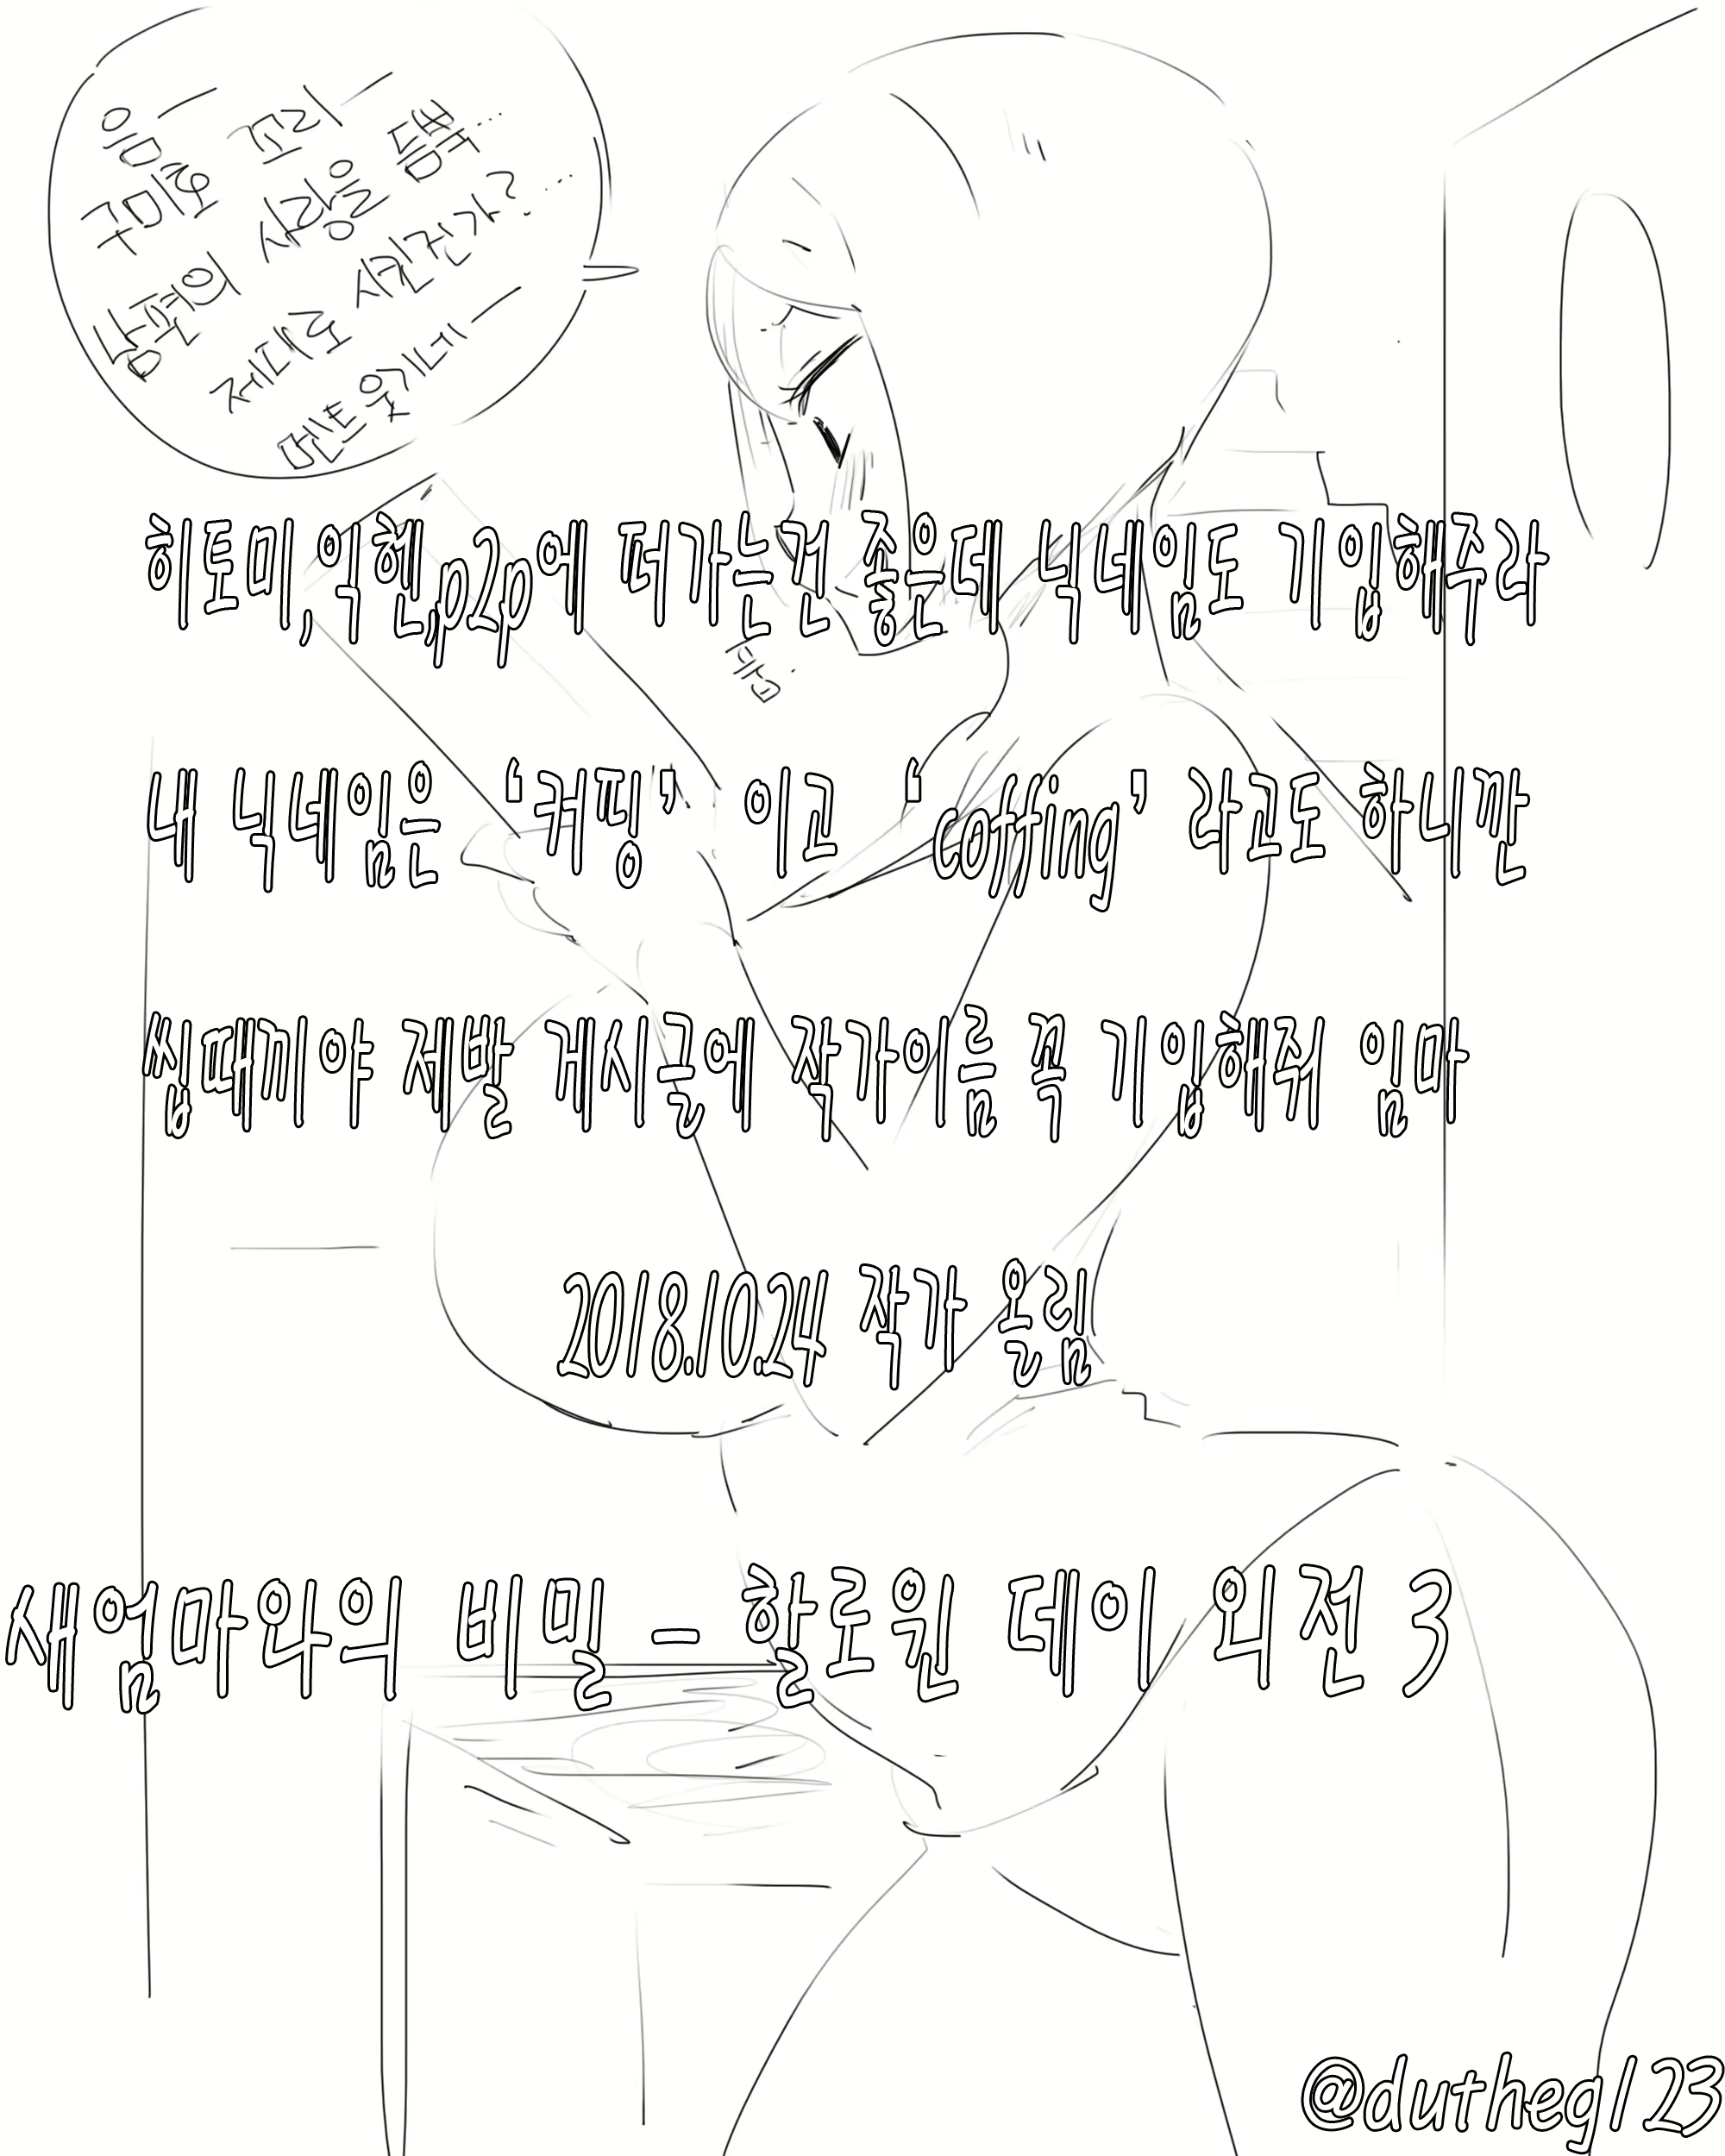 음— 꼬리—
구미호
남편의 사랑을 듬뿍...
제대로 시킨건가?...
멘트 웃기네—
히토미,익헨,p2p에 떠가는건 좋은데 닉네임도 기입해주라
내 닉네임은 ‘커핑’ 이고 ‘coffing’ 라고도 하니깐
씹때끼야 제발 게시글에 작가이름 꼭 기입해줘 임마
2018.10.24 작가 올림
새엄마와의 비밀 - 할로윈 데이 외전 3
@dutheg123